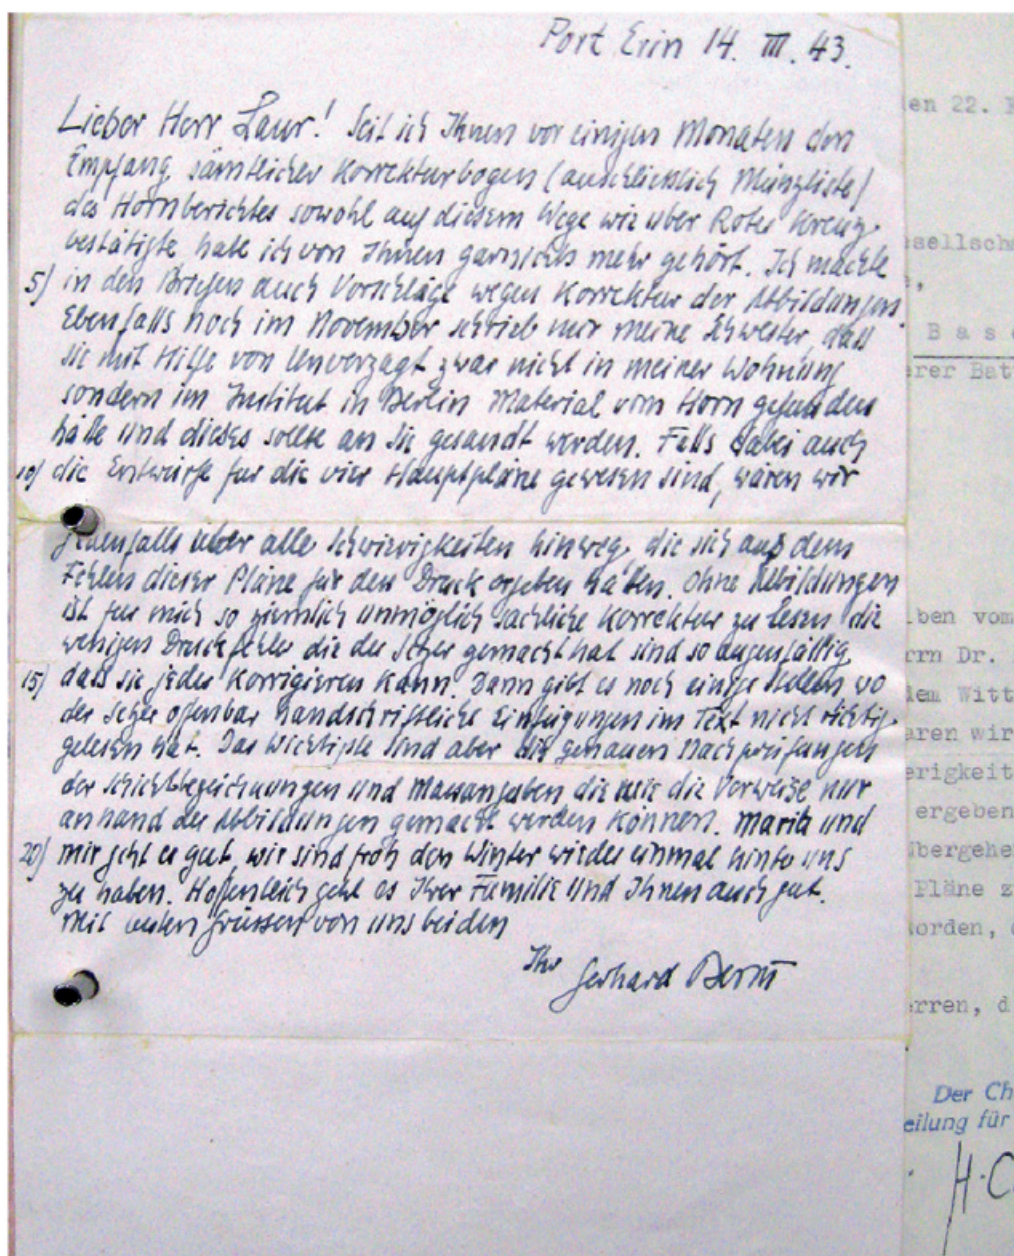 Port Erin 14. III. 43.
Lieber Herr Laur! Seit ich Ihnen vor einigen Monaten den
Empfang sämtlicher Korrekturbogen (ausschliesslich Münzliste)
des Hornberichtes sowohl auf diesem Wege wie über Rotes Kreuz
bestätigte habe ich von Ihnen garnichts mehr gehört. Ich machte
5) in den Briefen auch Vorschläge wegen Korrektur der Abbildungen.
Ebenfalls noch im November schrieb mir meine Schwester, dass
sie mit Hilfe von Unverzagt zwar nicht in meiner Wohnung
sondern im Institut in Berlin Material vom Horn gefunden
habe und dieses sollte an Sie gesandt werden. Falls dabei auch
10) die Entwürfe für die vier Hauptpläne gewesen sind, wären wir
jedenfalls über alle Schwierigkeiten hinweg, die sich aus dem
Fehlen dieser Pläne für den Druck ergeben hätten. Ohne Abbildungen
ist für mich so ziemlich unmöglich sachliche Korrektur zu lesen die
wenigen Druckfehler die der Setzer gemacht hat sind so augenfällig,
15) dass sie jeder korrigieren kann. Dann gibt es noch einige Stellen wo
der Setzer offenbar handschriftliche Einfügungen im Text nicht richtig
gelesen hat. Das Wichtigste sind aber die genauen Nachprüfungen
der Schichtbezeichnungen und Massangaben die wie die Verweise nur
an hand der Abbildungen gemacht werden können. Maria und
20) mir geht es gut, wir sind froh den Winter wieder einmal hinter uns
zu haben. Hoffentlich geht es Ihrer Familie und Ihnen auch gut.
Mit vielen Grüssen von uns beiden
Ihr Gerhard Bersu
en 22. F
esellscha
Base
erer Bat
ben vom
rrn Dr.
lem Witt
aren wir
erigkeit
ergeben
übergehe
Pläne z
orden,
rren, d
Der Ch
eilung für
H.C